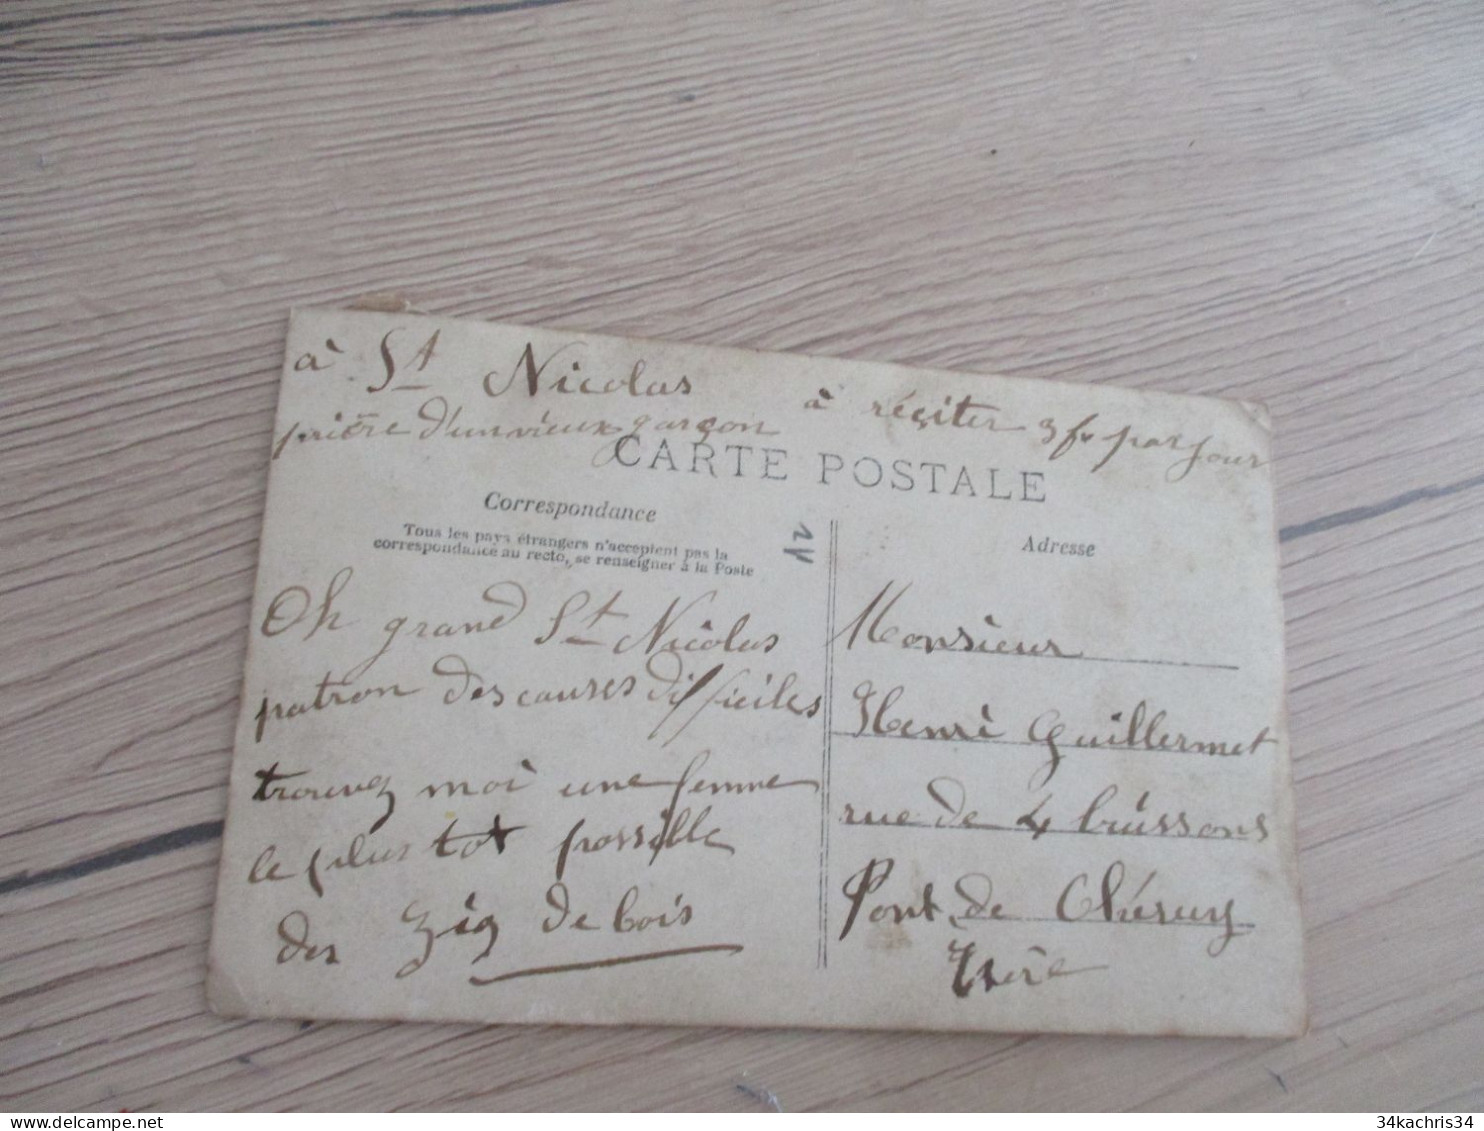 à St Nicolas
prière d'un vieux garçon à réçiter 3 fr par jour
CARTE POSTALE
Correspondance
Tous les pays étrangers n'acceptent pas la
correspondance au recto, se renseigner à la Poste
Oh grand St Nicolas
patron des causes difficiles
trouvez moi une femme
le plus tot possible
der zig de bois
Adresse
Monsieur
Henri Guillermet
rue de 4 buissons
Pont de Chéruy
Isère
34kachris34